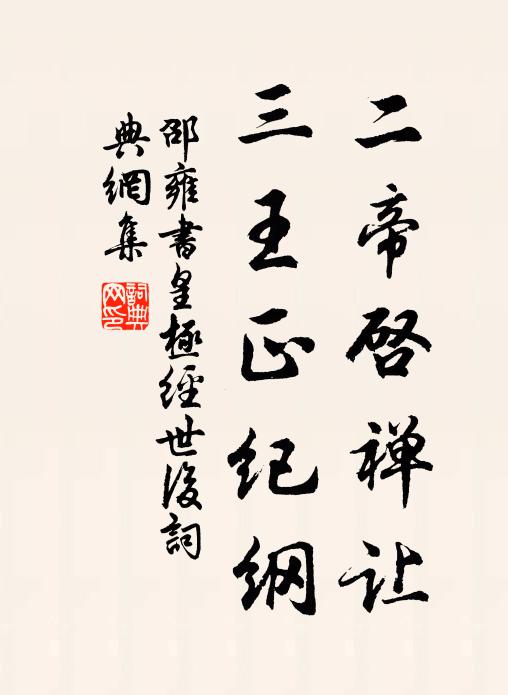 二帝啓禅让
三王正纪纲
邵雍書皇極經世後詞
典網集
詞典网印